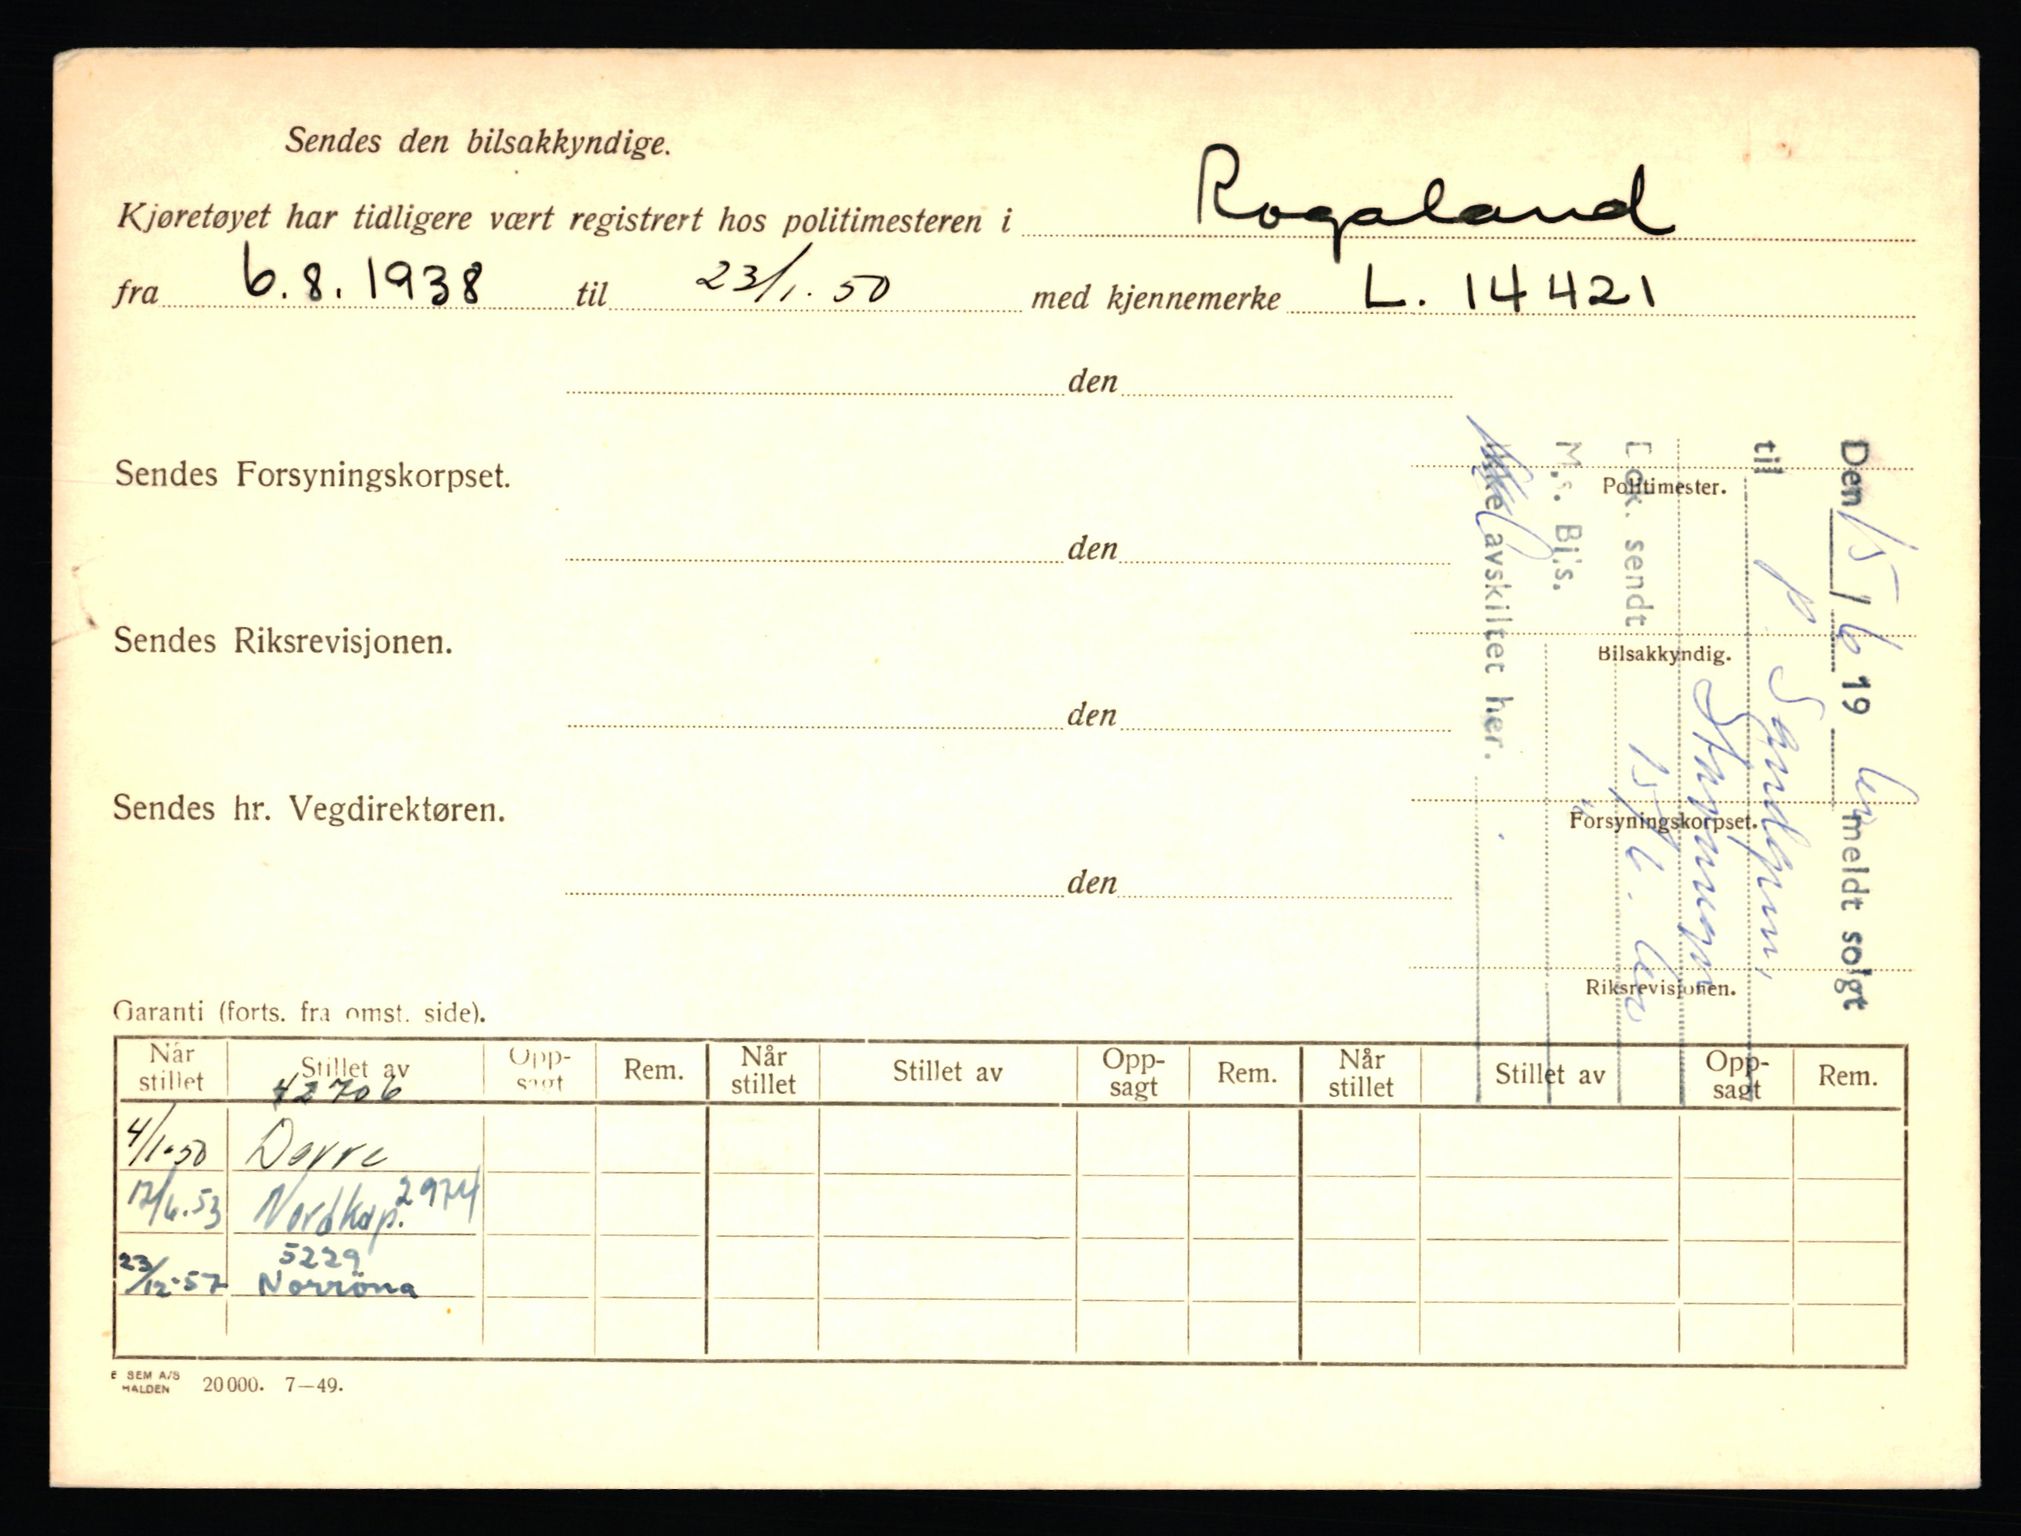 Sendes den bilsakkyndige.
Kjøretøyet har tidligere vært registrert hos politimesteren i Rogaland
fra 6.8.1938 til 23/1.50 med kjennemerke L. 14421
den
Politimester.
Sendes Forsyningskorpset.
den
Bilsakkyndig.
Sendes Riksrevisjonen.
den
Forsyningskorpset.
Sendes hr. Vegdirektøren.
den
Riksrevisjonen.
Den 15/6 19 meldt solgt
til
Dok. sendt
M.s. Bi.s.
Ikke avskiltet her.
Garanti (forts. fra omst. side).
Når stillet Stillet av Opp-sagt Rem. Når stillet Stillet av Opp-sagt Rem. Når stillet Stillet av Opp-sagt Rem.
42706
4/1-50 Dovre
17/6.53 Nordkap. 2974
5229
23/12-57 Norröna
SEM A/S
HALDEN 20000. 7—49.